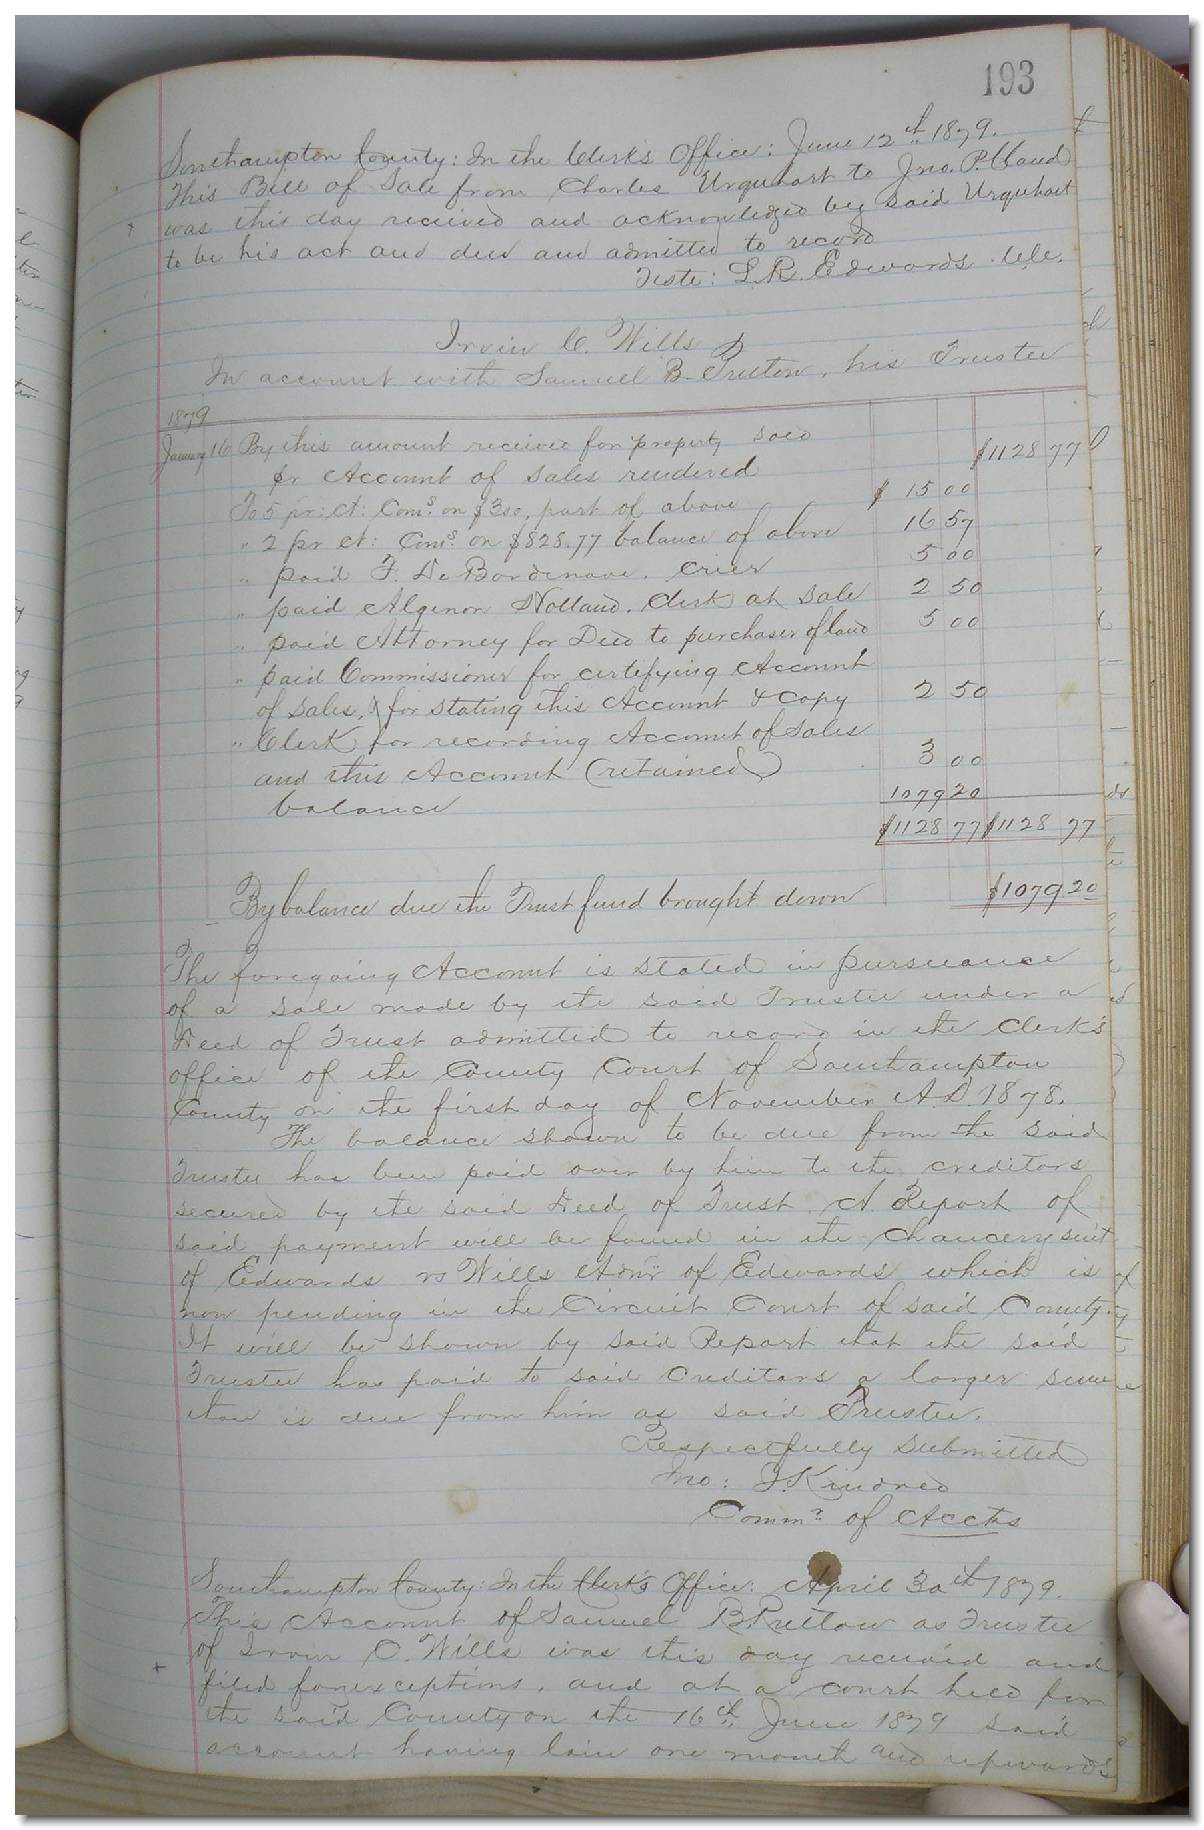 193
Southampton County: In the Clerk's Office: June 12th 1879.
This Bill of Sale from Charles Urquhart to Jno. P. Claud
was this day received and acknowledged by said Urquhart
to be his act and deed and admitted to record
Teste: L. R. Edwards C.C.
Irvin C. Wills
In account with Samuel B. Pretlow, his Trustee
1879
January 16 By this amount received for property sold
pr Account of Sales rendered $1128 77
To 5 pr: ct: Coms. on $300, part of above $ 15 00
" 2 pr ct: Coms. on $828.77 balance of above 16 57
" paid F. De Bordenave, crier 5 00
" paid Algenon Holland, Clerk at Sale 2 50
" paid Attorney for Deed to purchaser of land 5 00
" paid Commissioner for certifying Account
of Sales, & for stating this Account & copy 2 50
" Clerk for recording Account of Sales
and this Account (retained) 3 00
balance 1079 20
$1128 77 $1128 77
By balance due the Trust fund brought down $1079 20
The foregoing Account is stated in pursuance
of a sale made by the said Trustee under a
Deed of Trust admitted to record in the Clerk's
office of the County Court of Southampton
County on the first day of November A.D. 1878.
The balance shown to be due from the said
Trustee has been paid over by him to the creditors
secured by the said Deed of Trust. A Report of
said payment will be found in the Chancery suit
of Edwards vs Wills Admr of Edwards which is
now pending in the Circuit Court of said County.
It will be shown by said Report that the said
Trustee has paid to said Creditors a larger sum
than is due from him as said Trustee.
Respectfully Submitted
Jno: J. Kindred
Commr. of Accts
Southampton County: In the Clerk's Office: April 30th 1879.
This Account of Samuel B. Pretlow as Trustee
of Irvin C. Wills was this day received and
filed for exceptions, and at a court held for
the said County on the 16th June 1879 said
account having lain one month and upwards